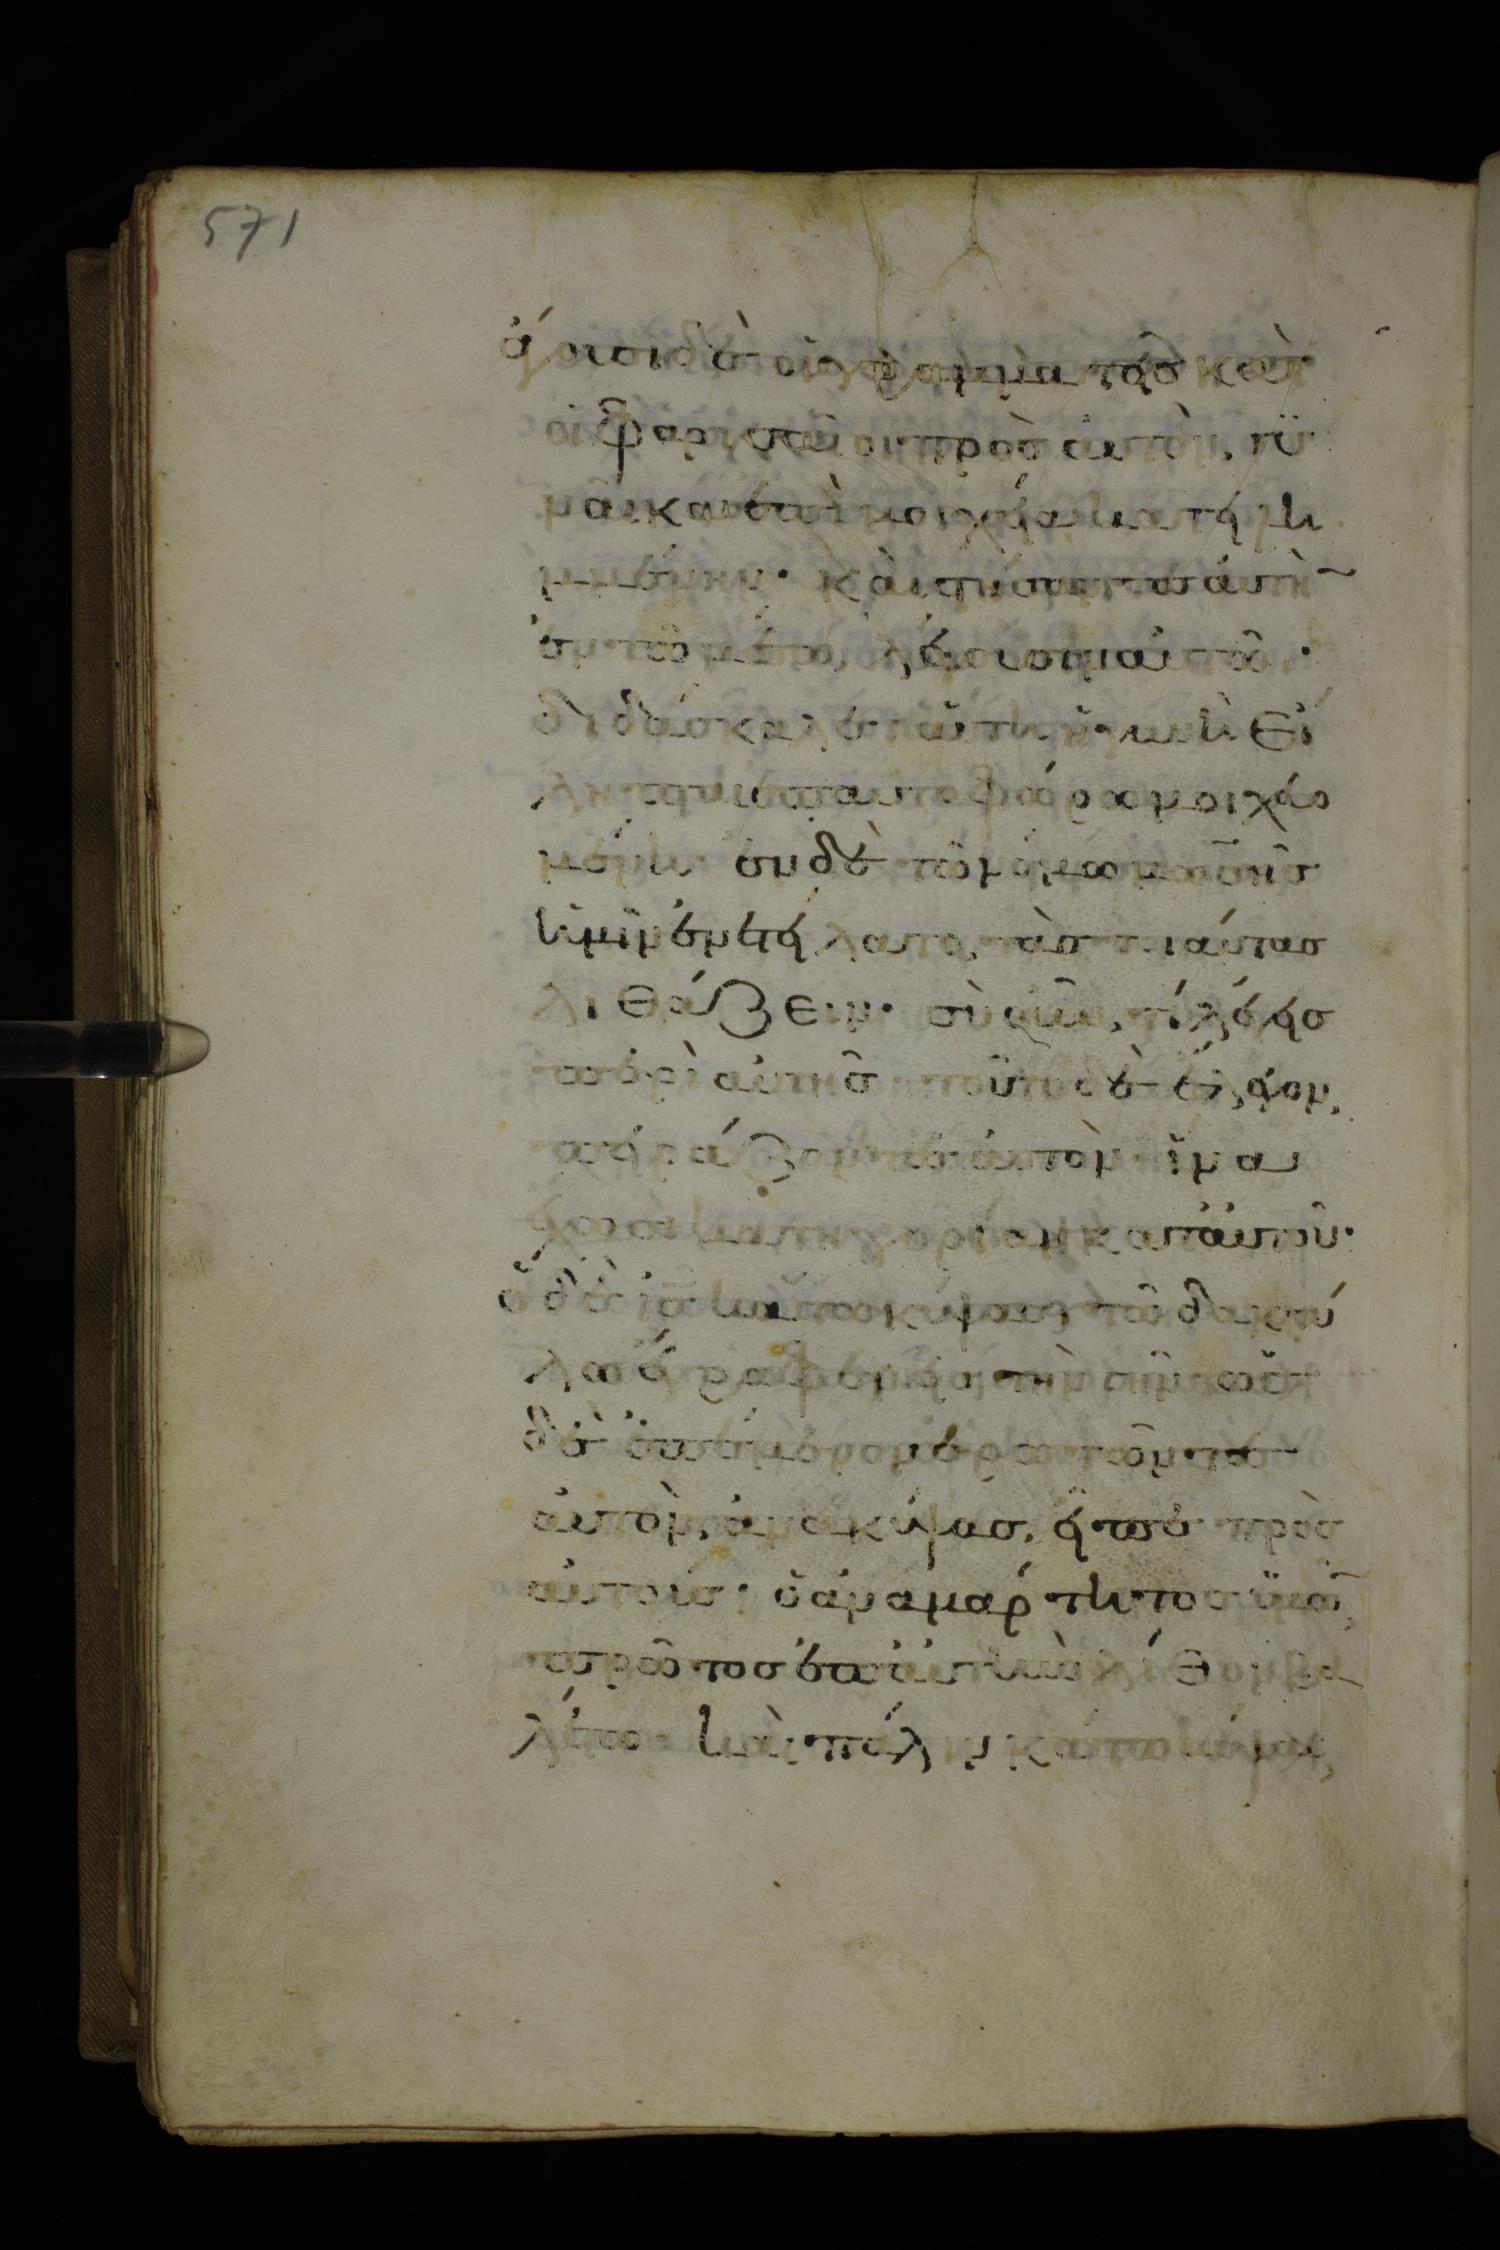 571
ἄγουσι δὲ οἱ γραμματεῖς καὶ
οἱ φαρισαῖοι πρὸς αὐτὸν, γυ
ναῖκα ἐπὶ μοιχεία κατειλη
μμένην. καὶ στήσαντες αὐτὴ
ἐν τῶ μέσω, λέγουσιν αὐτῶ.
διδάσκαλε αὕτη ἡ γυνὴ εἴ
ληπται ἐπαυτοφώρω μοιχευο
μένη. ἐν δὲ τῶ νόμω μωσῆς
ἡμῖν ἐνετείλατο, τὰς τοιαύτας
λιθάζειν. σὺ οὖν, τί λέγεις
περὶ αὐτῆς. τοῦτο δὲ ἔλεγον,
πειράζοντες αὐτὸν. ἵνα
ἔχωσι κατηγορίαν κατ αὐτοῦ.
ὁ δὲ ις κάτω κύψας, τῶ δακτύ
λω ἔγραφεν εἰς τὴν γῆν. ὡς
δὲ ἐπέμενον ἐρωτῶντες
αὐτὸν, ἀνακύψας, εἶπε πρὸς
αὐτούς. ὁ ἀναμάρτητος ὑμῶ,
πρῶτος ἐπ αὐτὴν λίθον βα
λέτω. καὶ πάλιν κάτω κύψας,